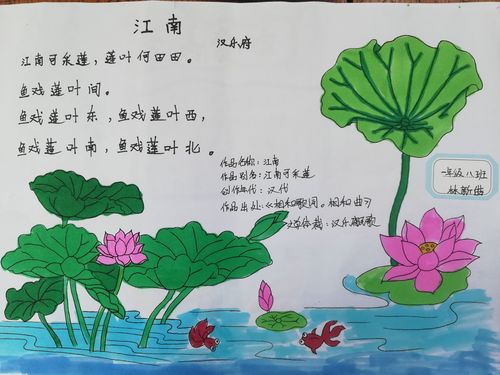 江南
汉乐府
江南可采莲，莲叶何田田。
鱼戏莲叶间。
鱼戏莲叶东，鱼戏莲叶西，
鱼戏莲叶南，鱼戏莲叶北。
作品名称：江南
作品别名：江南可采莲
创作年代：汉代
作品出处：《相和歌词。相和曲》
文学体裁：汉乐府歌
一年级八班
林新